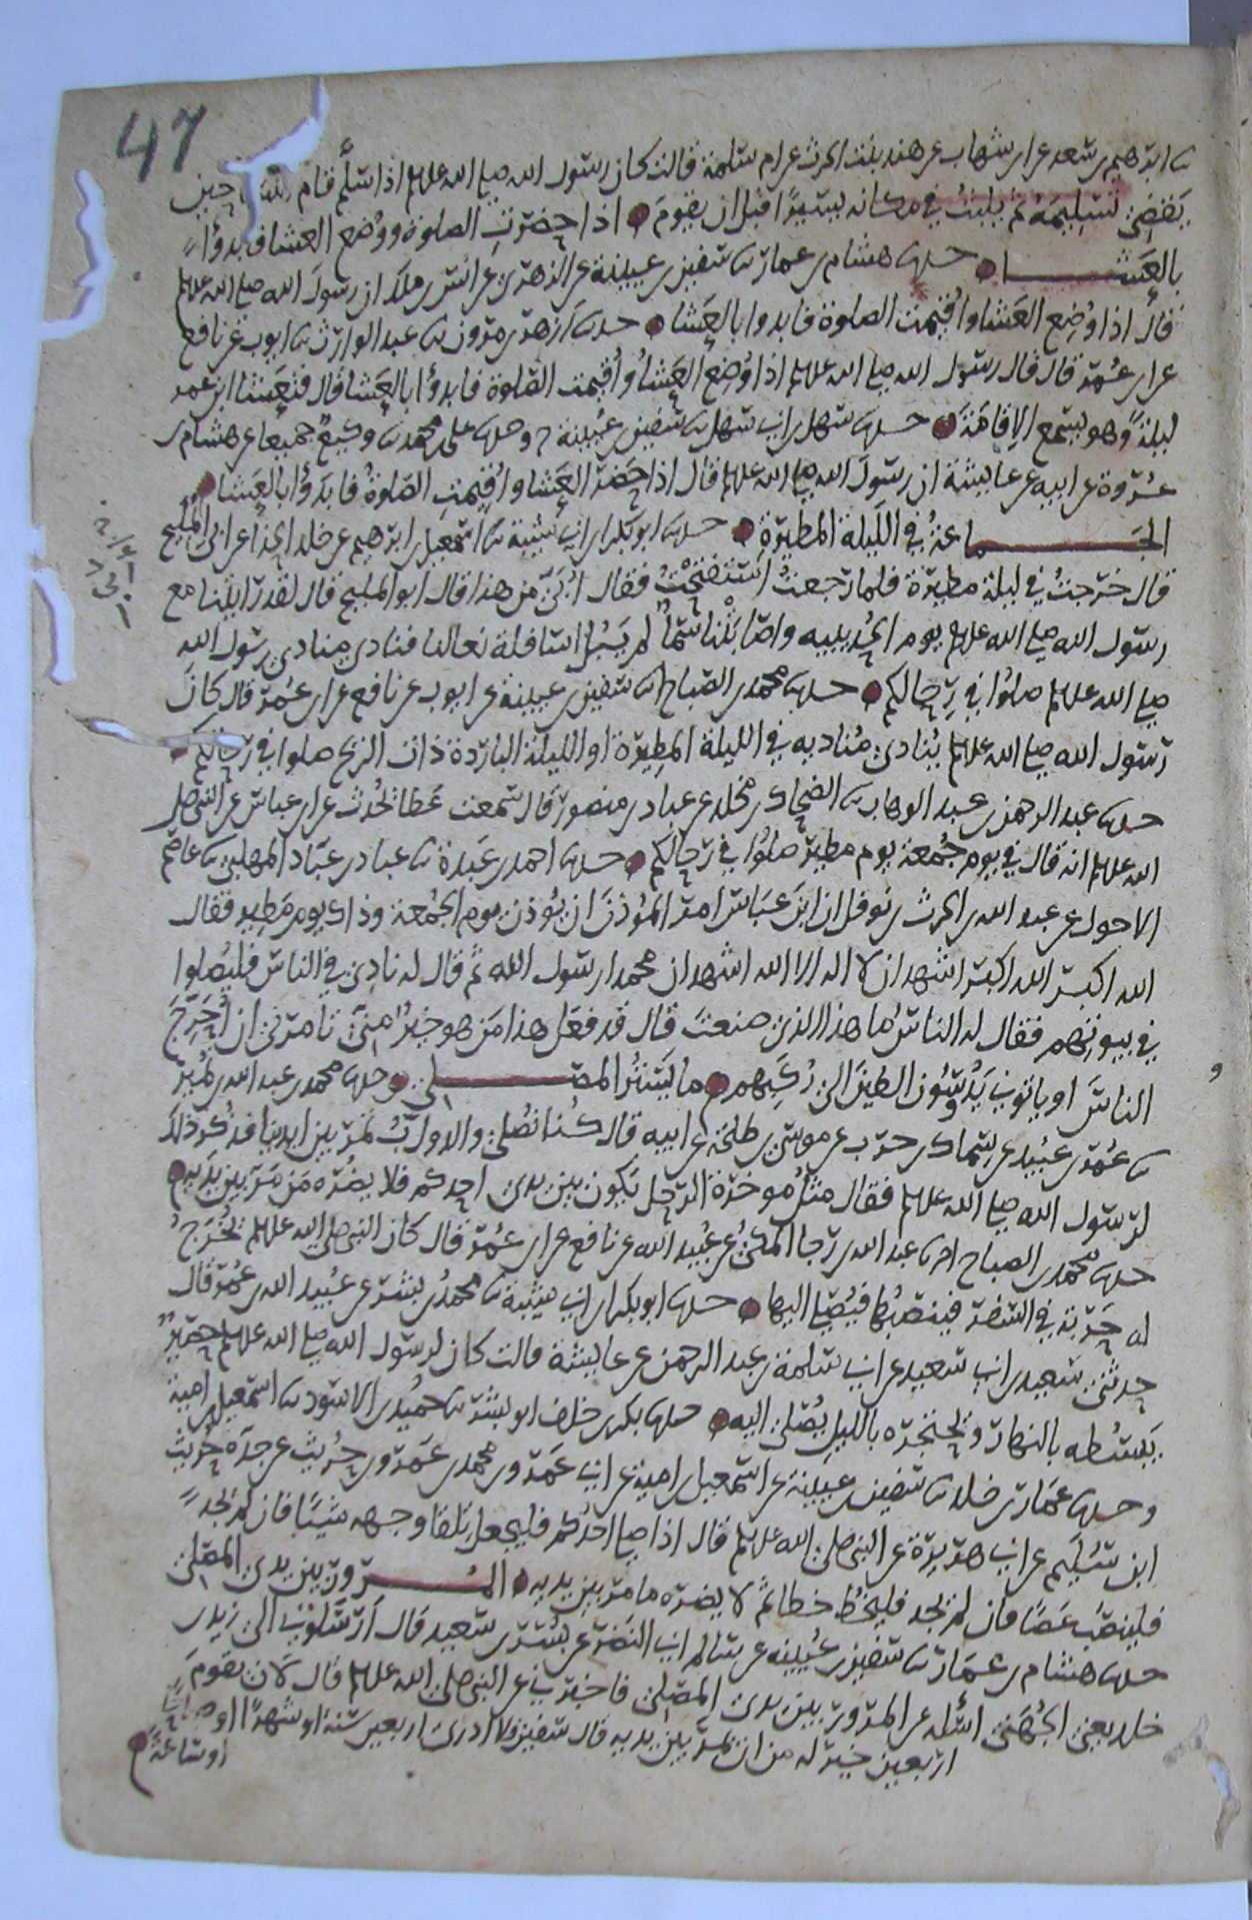 47
ابرهيم بن سعد عن ابن شهاب عن هند بنت الحرث عن ام سلمة قالت كان رسول الله صلى الله عليه وسلم اذا سلم قام النسا حين
يقضي تسليمه ثم يلبث في مكانه يسيرا قبل ان يقوم اذا حضرت الصلوة ووضع العشا فابدؤا
بالعشا حدثنا هشام بن عمار ثنا سفين بن عيينة عن الزهري عن انس بن ملك ان رسول الله صلى الله عليه وسلم
قال اذا وضع العشا واقيمت الصلوة فابدوا بالعشا حدثنا ازهر بن مرون ثنا عبد الوارث ثنا ايوب عن نافع
عن ابن عمر قال قال رسول الله صلى الله عليه وسلم اذا وضع العشا واقيمت الصلوة فابدؤا بالعشا قال فتعشا ابن عمر
ليلة وهو يسمع الاقامة حدثنا سهل بن ابي سهل ثنا سفين بن عيينة ح وحدثنا علي بن محمد ثنا وكيع جميعا عن هشام بن
عروة عن ابيه عن عايشة ان رسول الله صلى الله عليه وسلم قال اذا حضر العشا واقيمت الصلوة فابدؤا بالعشا
الجماعة في الليلة المطيرة حدثنا ابو بكر بن ابي شيبة ثنا اسمعيل بن ابرهيم عن خلد الحذا عن ابي المليح
قال خرجت في ليلة مطيرة فلما رجعت استفتحت فقال ابي من هذا قال ابو المليح قال لقد رايتنا مع
رسول الله صلى الله عليه وسلم يوم الحديبيه واصابتنا سما لم تبل اسافلة نعالنا فنادى منادي رسول الله
صلى الله عليه وسلم صلوا في رحالكم حدثنا محمد بن الصباح ثنا سفين بن عيينة عن ايوب عن نافع عن ابن عمر قال كان
رسول الله صلى الله عليه وسلم ينادي مناديه في الليلة المطيرة او الليلة الباردة ذات الريح صلوا في رحالكم
حدثنا عبد الرحمن بن عبد الوهاب ثنا الضحاك بن مخلد عن عباد بن منصور قال سمعت عطا يحدث عن ابن عباس عن النبي صلى
الله عليه وسلم انه قال في يوم جمعة يوم مطير صلوا في رحالكم حدثنا احمد بن عبدة ثنا عباد بن عباد المهلبي ثنا عاصم
الاحول عن عبد الله بن الحرث بن نوفل ان ابن عباس امر المؤذن ان يؤذن يوم الجمعة وذاك يوم مطير فقال
الله اكبر الله اكبر اشهد ان لا اله الا الله اشهد ان محمدا رسول الله ثم قال له نادي في الناس فليصلوا
في بيوتهم فقال له الناس ما هذا الذي صنعت قال قد فعل هذا من هو خير مني تامرني ان اخرج
الناس او ياتوني يدوسون الطين الى ركبهم ما يستر المصلي وحدثنا محمد بن عبد الله بن نمير
ثنا عمر بن عبيد عن سماك بن حرب عن موسى بن طلحة عن ابيه قال كنا نصلي والدواب تمر بين ايدينا فذكر ذلك
لرسول الله صلى الله عليه وسلم فقال مثل موخرة الرحل تكون بين يدي احدكم فلا يضره من مر بين يديه
حدثنا محمد بن الصباح انا عبد الله بن رجا المكي عن عبيد الله عن نافع عن ابن عمر قال كان النبي صلى الله عليه وسلم تخرج
له حربة في السفر فينصبها فيصلي اليها حدثنا ابو بكر بن ابي شيبة ثنا محمد بن بشر عن عبيد الله بن عمر قال
حدثني سعيد بن ابي سعيد عن ابي سلمة بن عبد الرحمن عن عايشة قالت كان لرسول الله صلى الله عليه وسلم حصير
يبسطه بالنهار ويحتجره بالليل يصلي اليه حدثنا بكر بن خلف ابو بشر ثنا حميد بن الاسود ثنا اسمعيل بن امية
وحدثنا عمار بن خلد ثنا سفين بن عيينة عن اسمعيل بن امية عن ابي عمرو بن محمد بن عمرو بن حريث عن جده حريث
ابن سليم عن ابي هريرة عن النبي صلى الله عليه وسلم قال اذا صلى احدكم فليجعل تلقا وجهه شيئا فان لم يجد
فلينصب عصا فان لم يجد فليخط خطا ثم لا يضره ما مر بين يديه المرور بين يدي المصلي
حدثنا هشام بن عمار ثنا سفين بن عيينه عن سالم ابي النضر عن بسر بن سعيد قال ارسلوني الى زيد بن
خلد يعني الجهني اسئله عن المرور بين يدي المصلي فاخبرني عن النبي صلى الله عليه وسلم قال لان يقوم
اربعين خير له من ان يمر بين يديه قال سفين فلا ادري اربعين سنة او شهرا او صباحا
او ساعة